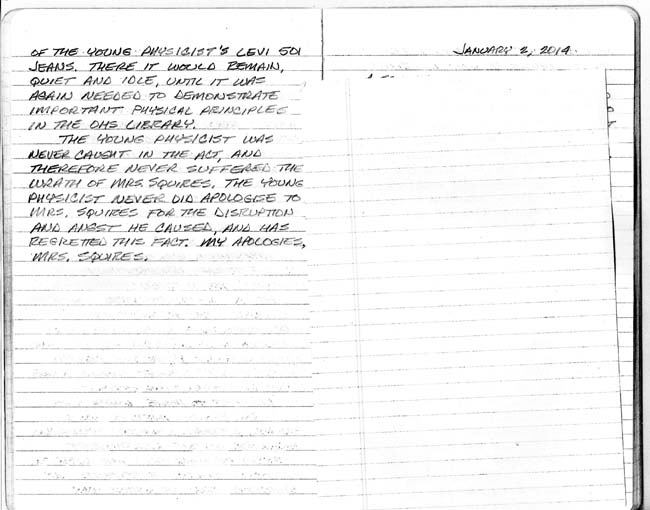 OF THE YOUNG PHYSICIST'S LEVI 501
JEANS. THERE IT WOULD REMAIN,
QUIET AND IDLE, UNTIL IT WAS
AGAIN NEEDED TO DEMONSTRATE
IMPORTANT PHYSICAL PRINCIPLES
IN THE OHS LIBRARY.
THE YOUNG PHYSICIST WAS
NEVER CAUGHT IN THE ACT, AND
THEREFORE NEVER SUFFERED THE
WRATH OF MRS. SQUIRES. THE YOUNG
PHYSICIST NEVER DID APOLOGISE TO
MRS. SQUIRES FOR THE DISRUPTION
AND ANGST HE CAUSED, AND HAS
REGRETTED THIS FACT. MY APOLOGIES,
MRS. SQUIRES.
JANUARY 2, 2014.